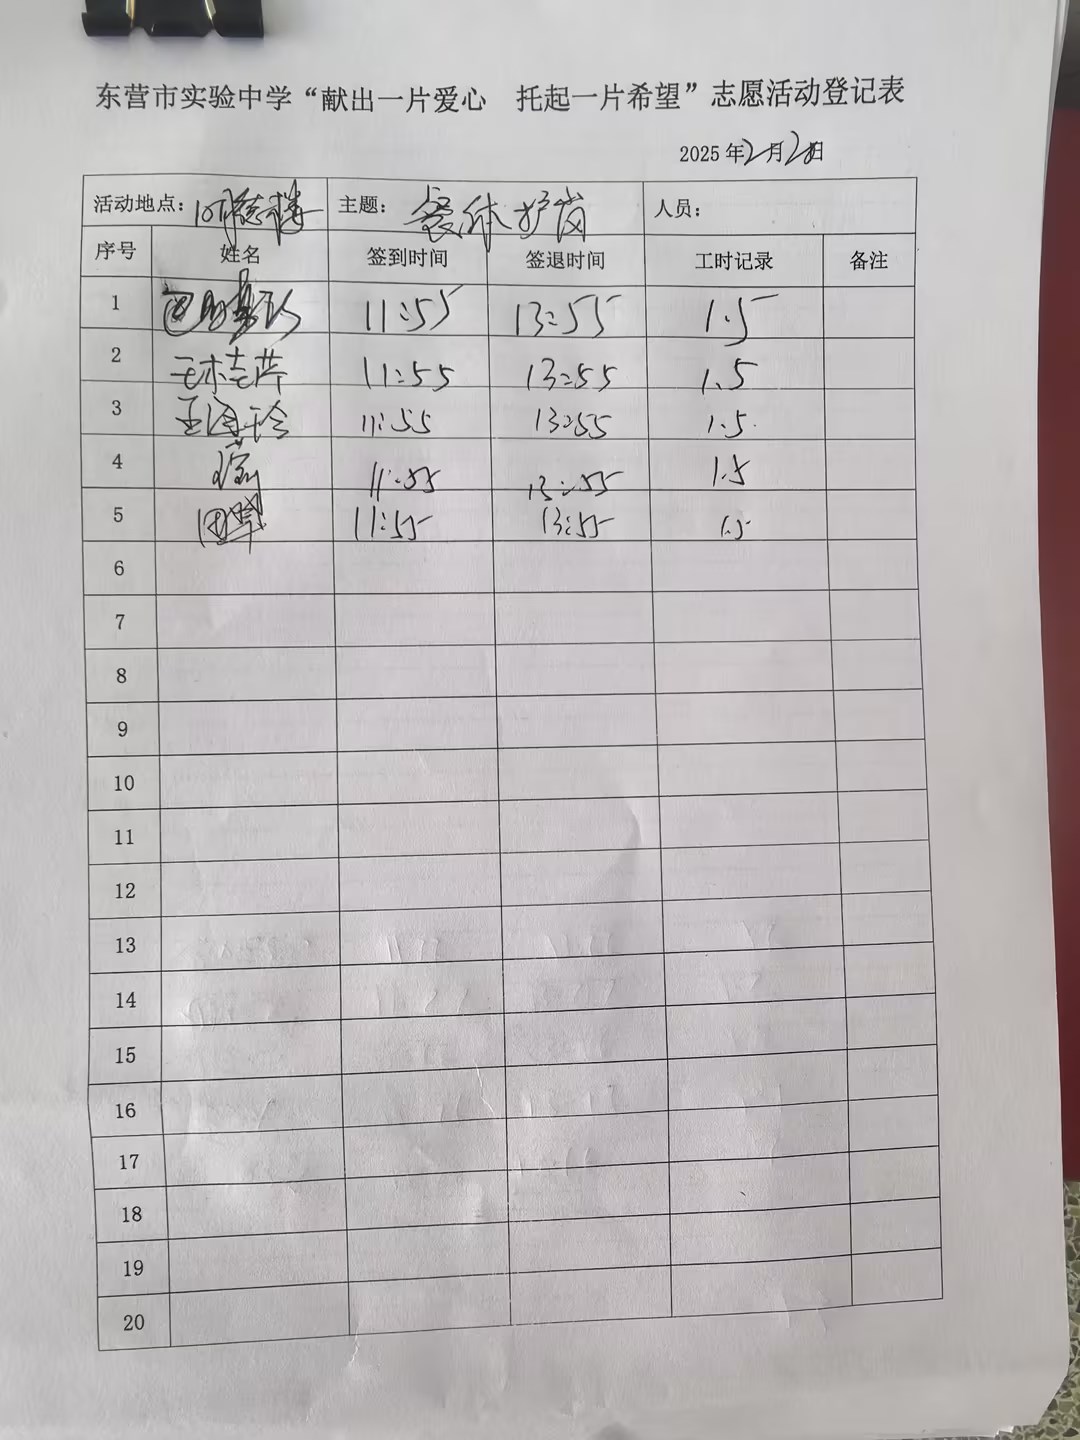 东营市实验中学“献出一片爱心 托起一片希望”志愿活动登记表
2025年2月2日
活动地点: 明德楼 主题: 餐休护岗 人员:
序号 姓名 签到时间 签退时间 工时记录 备注
1 11:55 13:55 1.5
2 11:55 13:55 1.5
3 11:55 13:55 1.5
4 11:55 13:55 1.5
5 11:55 13:55 1.5
6
7
8
9
10
11
12
13
14
15
16
17
18
19
20